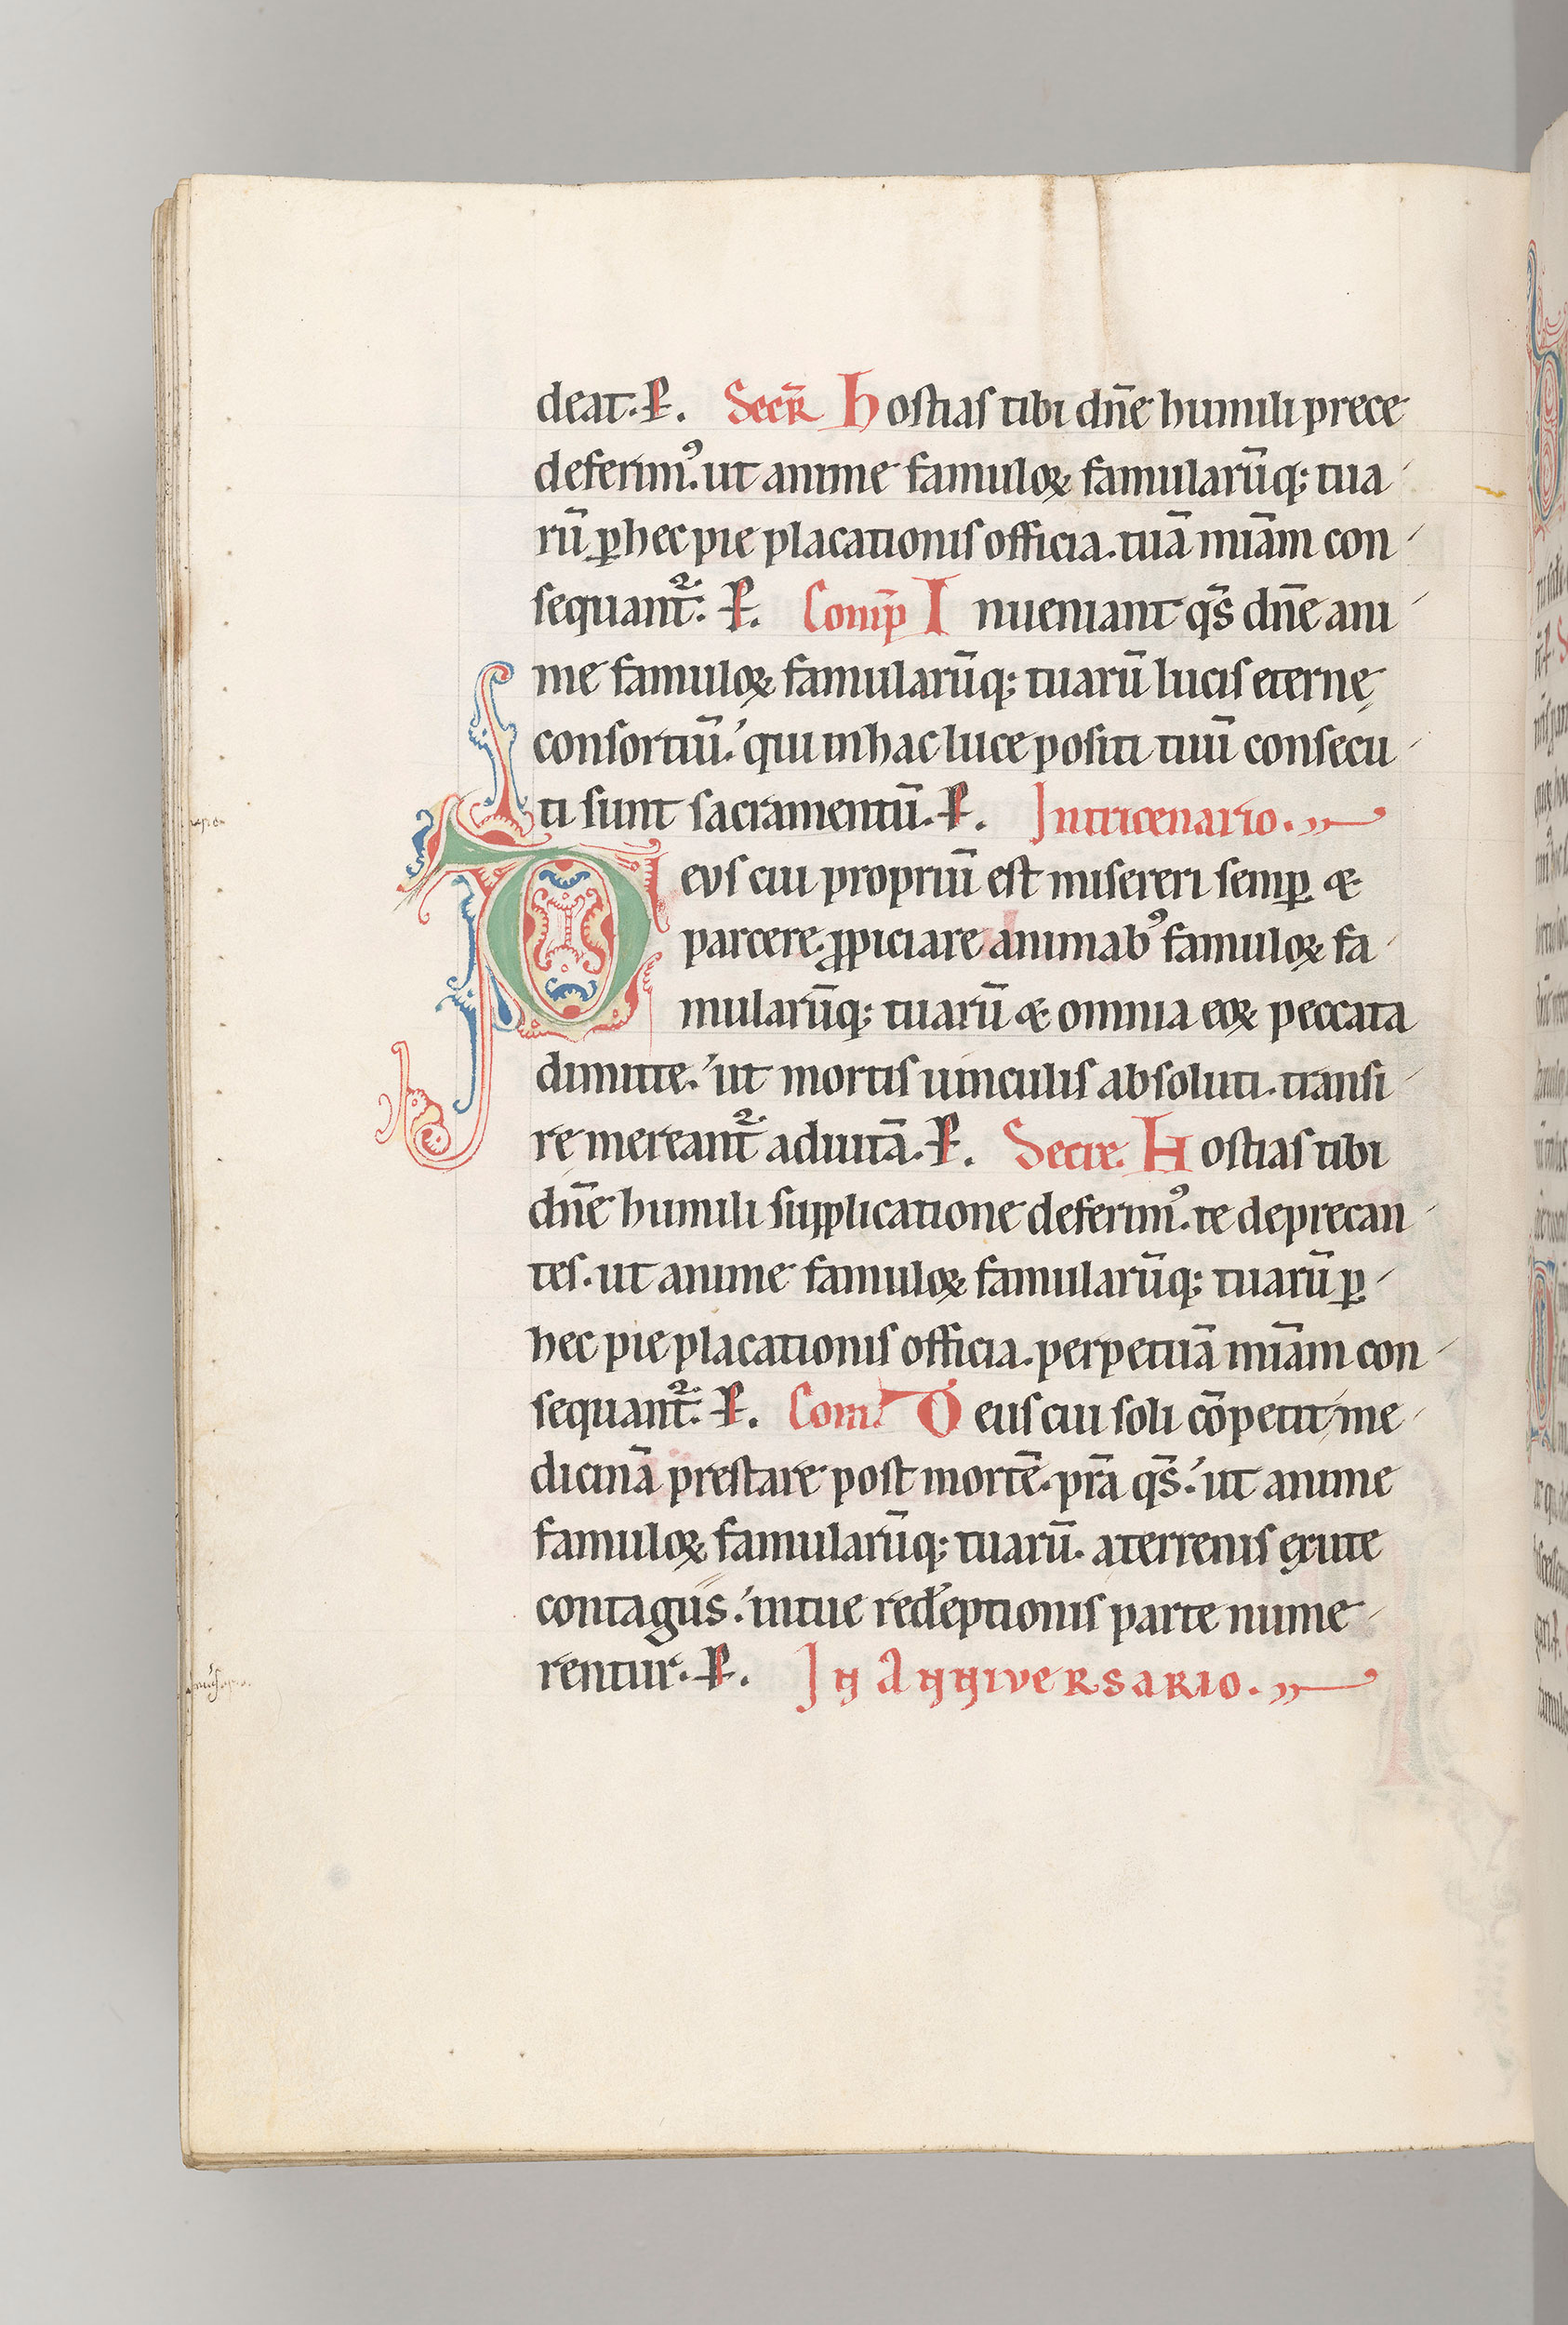 deat. P. Secr̄ Hostias tibi dn̄e humili prece
deferim᷒. ut anime famuloꝝ famularūq; tua
rū ꝑ hec pie placationis officia. tuā miām con
sequant᷑. P. Comp̄ Inueniant qs̄ dn̄e ani
me famuloꝝ famularūq; tuarū lucis eternę
consortiū. qui in hac luce positi tuū consecu
ti sunt sacramentū. P. In tricenario.
Deus cui propriū est misereri semꝑ &
parcere. ꝓpiciare animab᷒ famuloꝝ fa
mularūq; tuarū & omnia eoꝝ peccata
dimitte. ut mortis uinculis absoluti. transi
re mereant᷑ ad uitā. P. Secre. Hostias tibi
dn̄e humili supplicatione deferim᷒. te deprecan
tes. ut anime famuloꝝ famularūq; tuarū ꝑ
hec pie placationis officia. perpetuā miām con
sequant᷑. P. Com̄ Deus cui soli cōpetit me
dicinā prestare post mortē. pr̄a qs̄. ut anime
famuloꝝ famularūq; tuarū. a terrenis exute
contagiis. in tue redēptionis parte nume
rentur. P. In Anniversario.